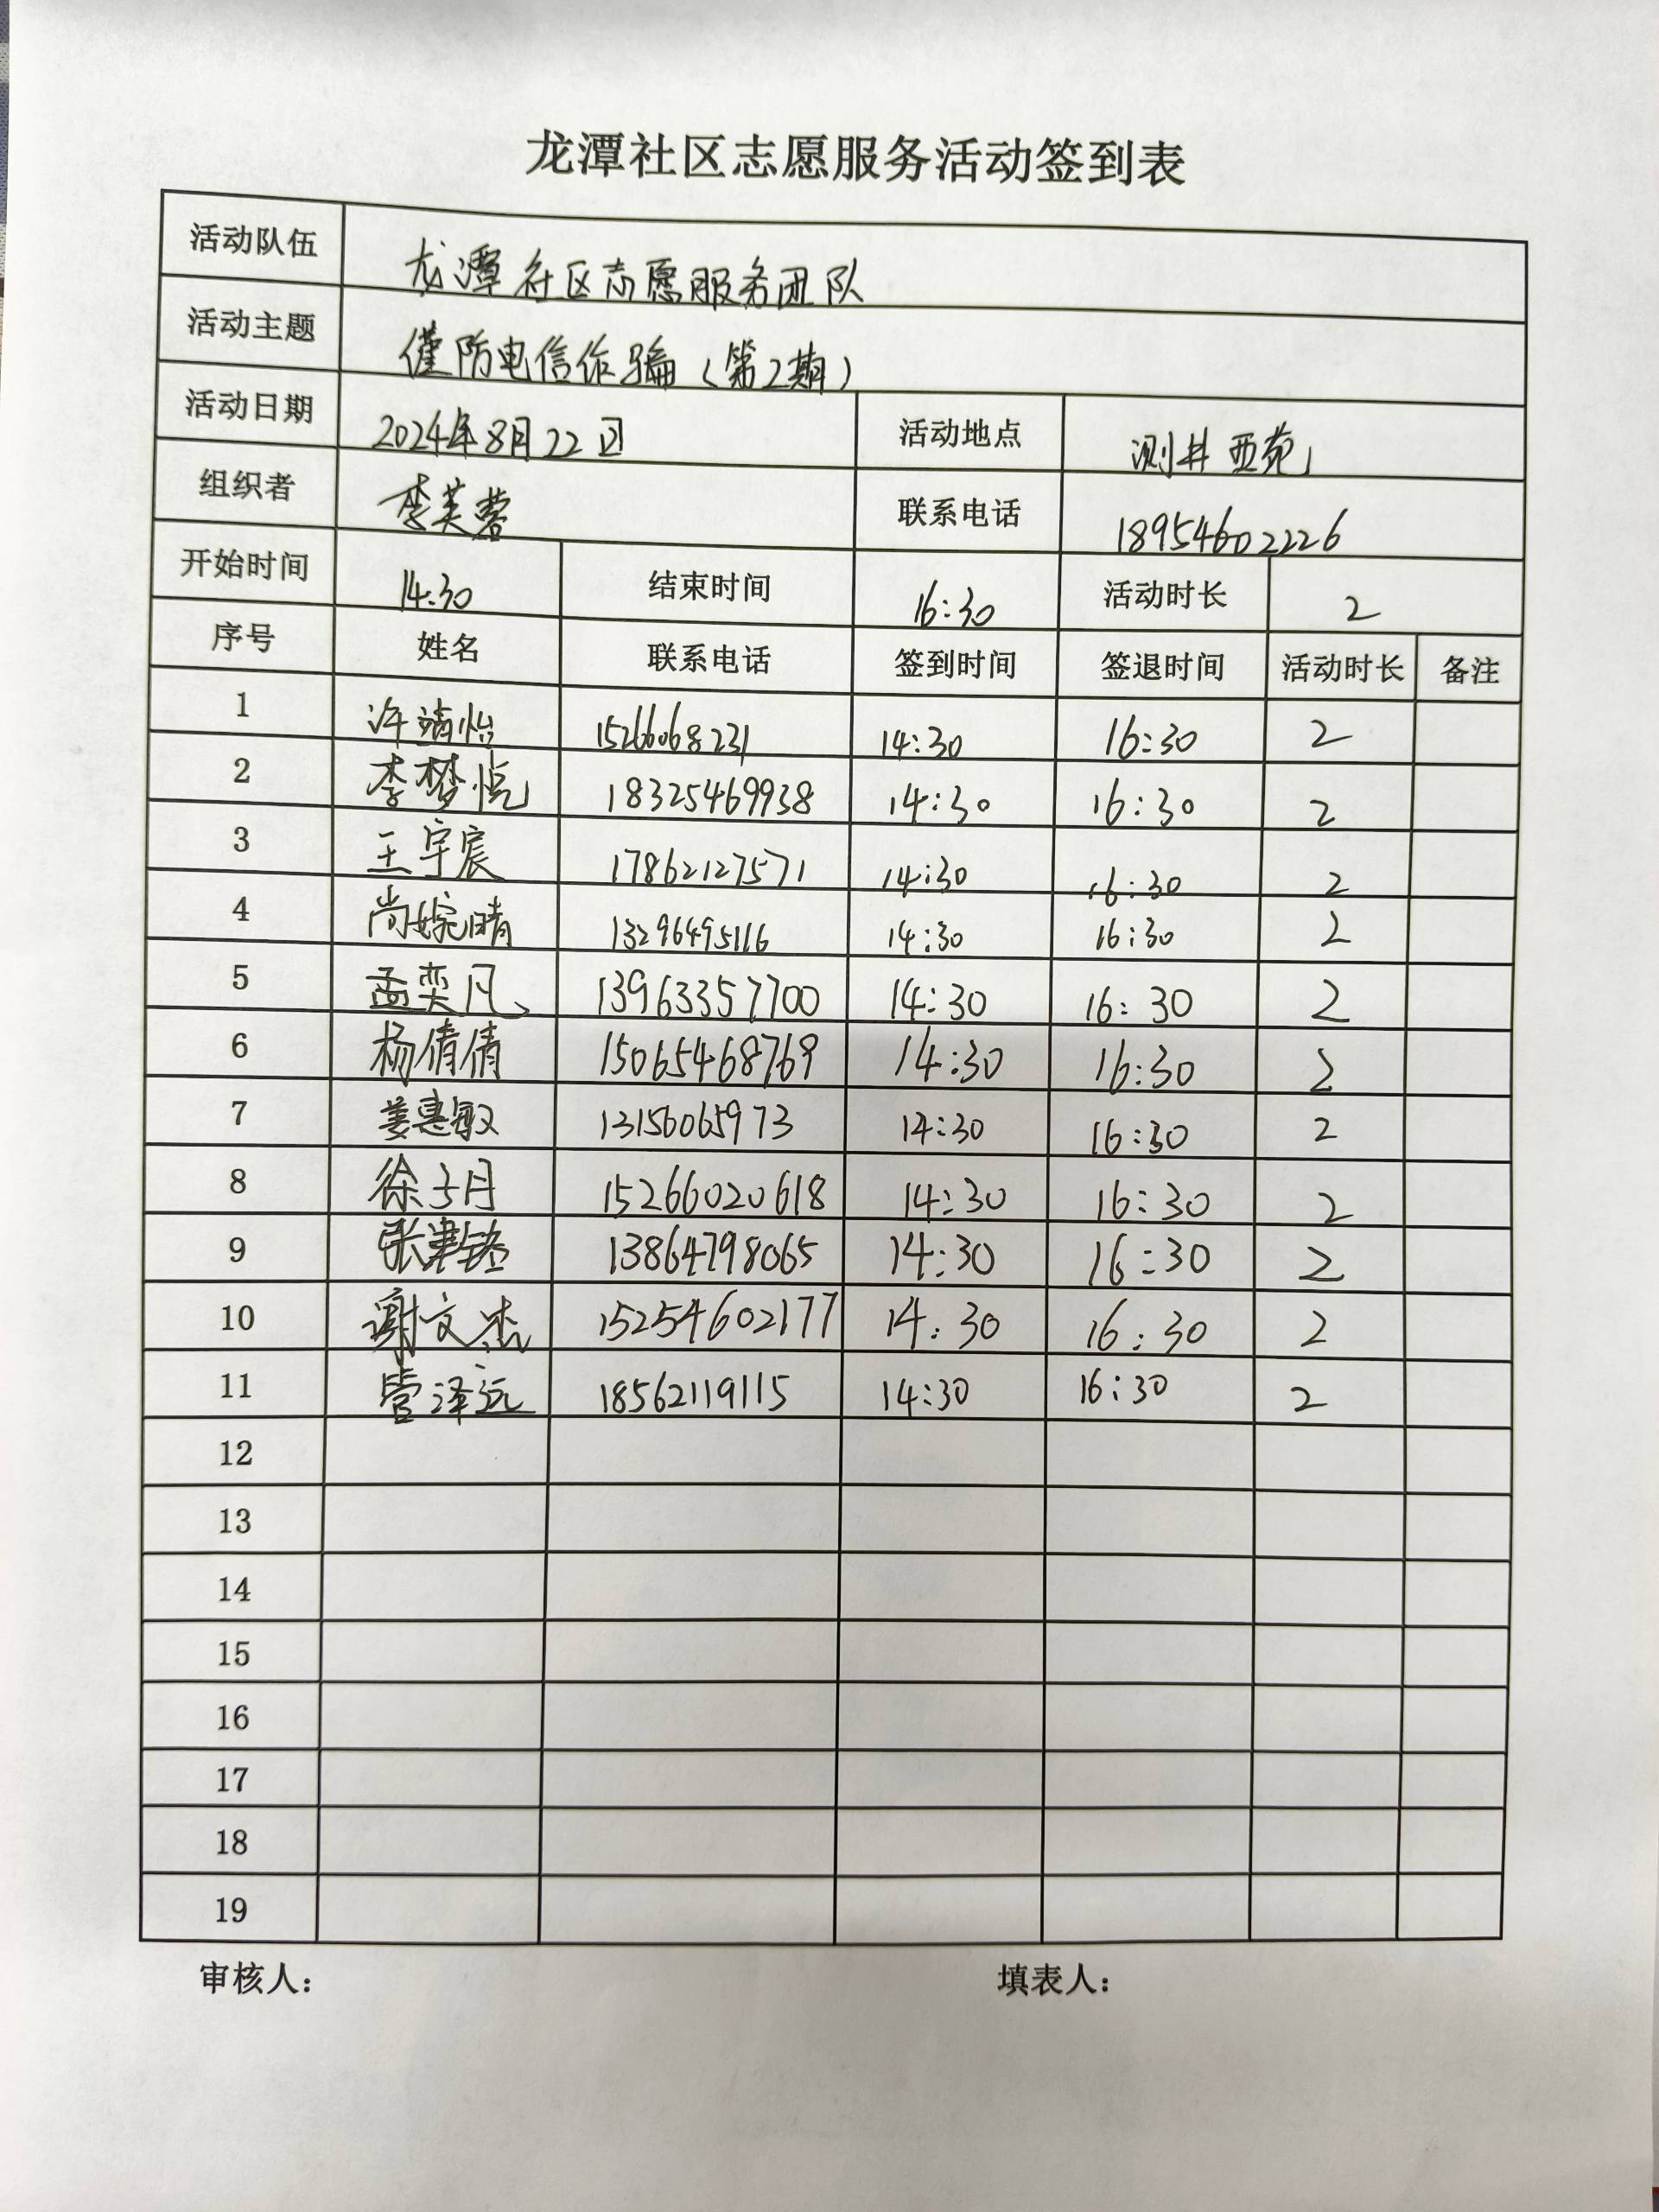 龙潭社区志愿服务活动签到表
活动队伍 龙潭社区志愿服务团队
活动主题 谨防电信诈骗（第2期）
活动日期 2024年8月22日 活动地点 测井西苑
组织者 李芙蓉 联系电话 18954602226
开始时间 14:30 结束时间 16:30 活动时长 2
序号 姓名 联系电话 签到时间 签退时间 活动时长 备注
1 许靖怡 15266068231 14:30 16:30 2
2 李梦悦 18325469938 14:30 16:30 2
3 王宇宸 17862127571 14:30 16:30 2
4 尚婉晴 13296495116 14:30 16:30 2
5 孟奕凡 13963357700 14:30 16:30 2
6 杨倩倩 15065468769 14:30 16:30 2
7 姜惠敏 13156065973 14:30 16:30 2
8 徐子月 15266020618 14:30 16:30 2
9 张 13864798065 14:30 16:30 2
10 谢文杰 15254602177 14:30 16:30 2
11 管泽远 18562119115 14:30 16:30 2
12
13
14
15
16
17
18
19
审核人： 填表人：